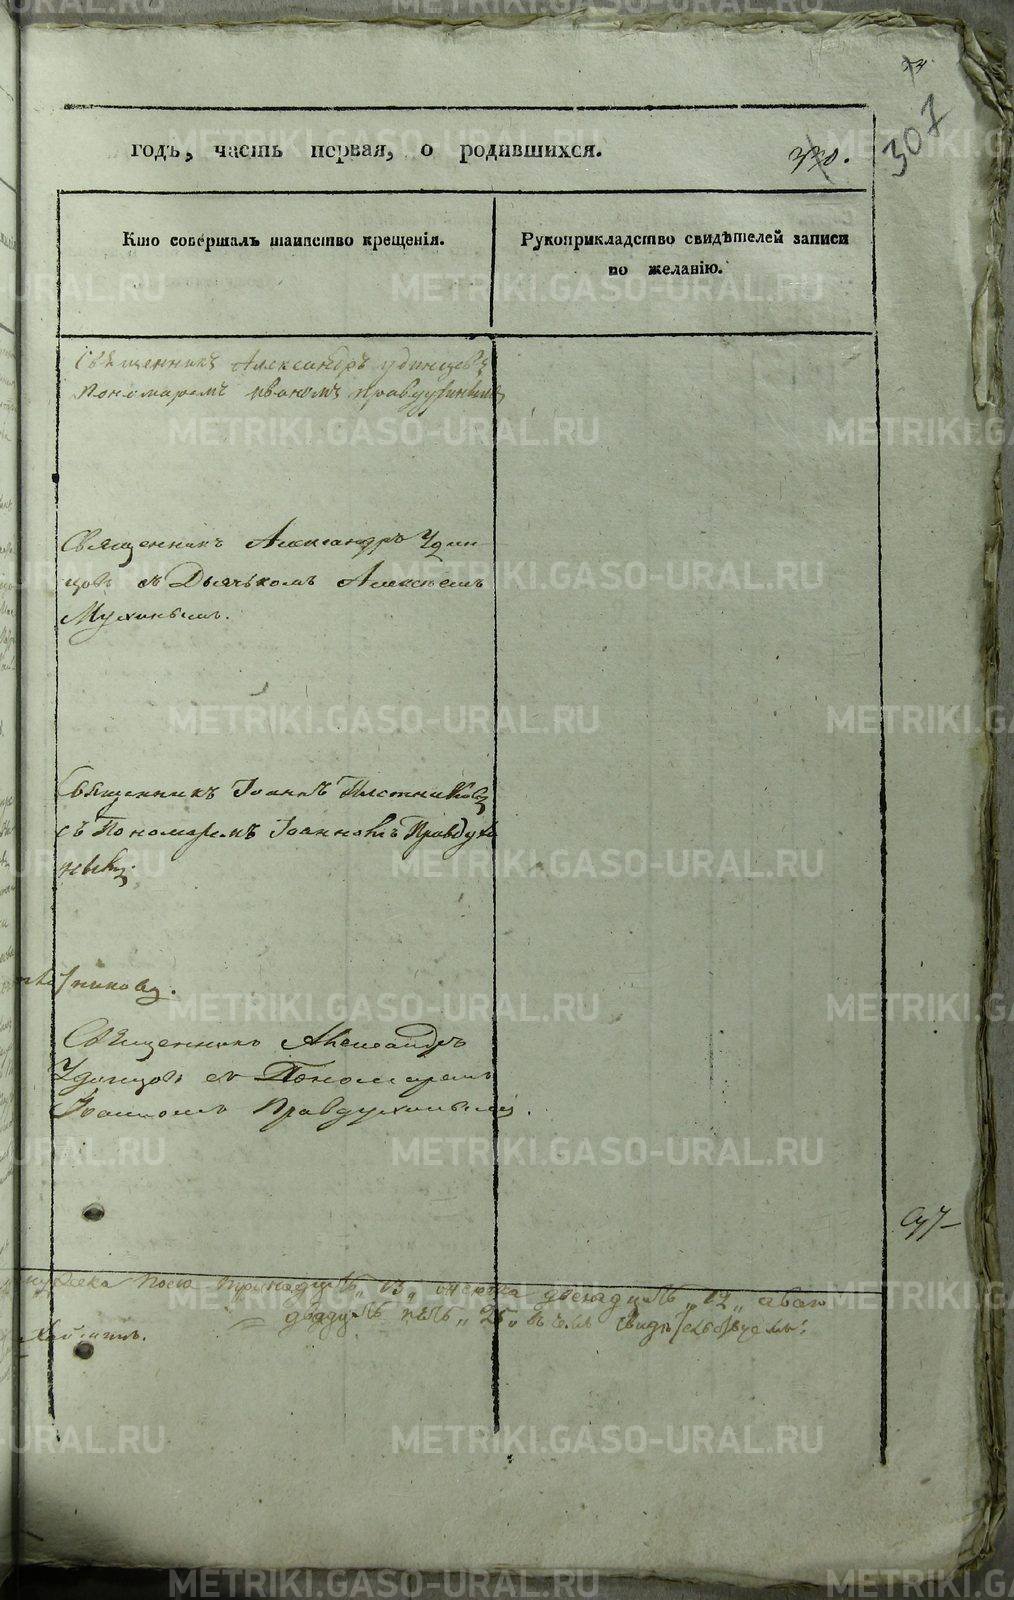 307
годъ, часть первая, о родившихся.
Кто совершалъ таинство крещенія.
Рукоприкладство свидѣтелей записи
по желанію.
Священникъ Александръ Удинцевъ
пономаремъ Иваномъ Правдухинымъ
Священникъ Александръ Удин-
цовъ съ Дьячькомъ Алексѣемъ
Мухинымъ.
Священникъ Іоаннъ Плотниковъ
съ Пономаремъ Іоанномъ Правдухи
нымъ.
Священникъ Александръ
Удинцовъ съ Пономаремъ
Іоанномъ Правдухинымъ.
мужеска пола тринадцать „13„ женска двенадцать „12„ а всего
двадцать пять „25„ въ чемъ свидѣтельствуемъ:
METRIKI.GASO-URAL.RU